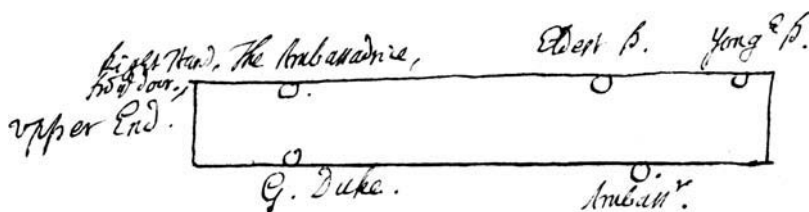 Right Hand, The Ambassadrice, Eldest P. Yong^r P.
from y^e dour.,
upper End.
G. Duke. Ambass^r.